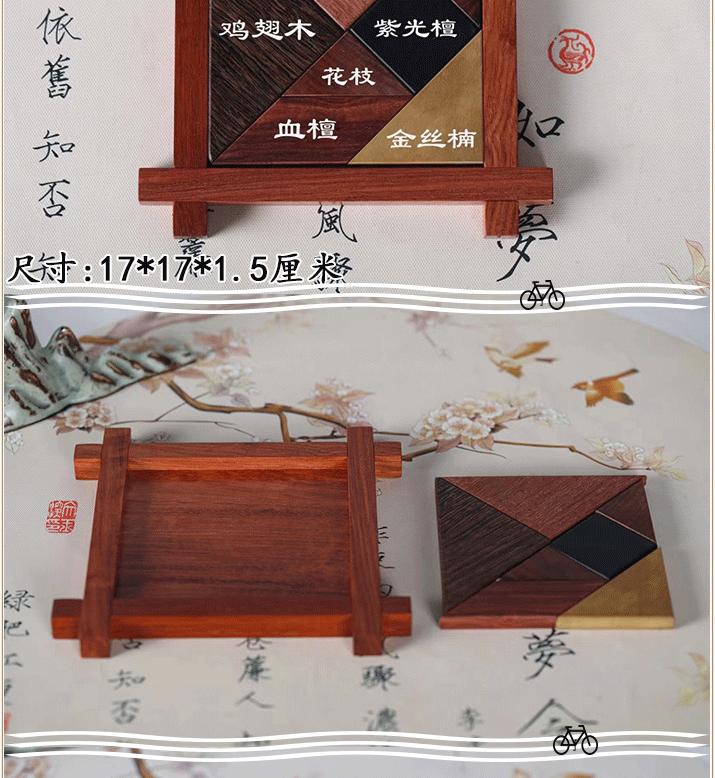 鸡翅木
紫光檀
花枝
血檀
金丝楠
尺寸:17*17*1.5厘米
依舊
知否
知
如
夢
風驟
綠肥紅
知否
卷簾人
驟
濃
李
夢
令